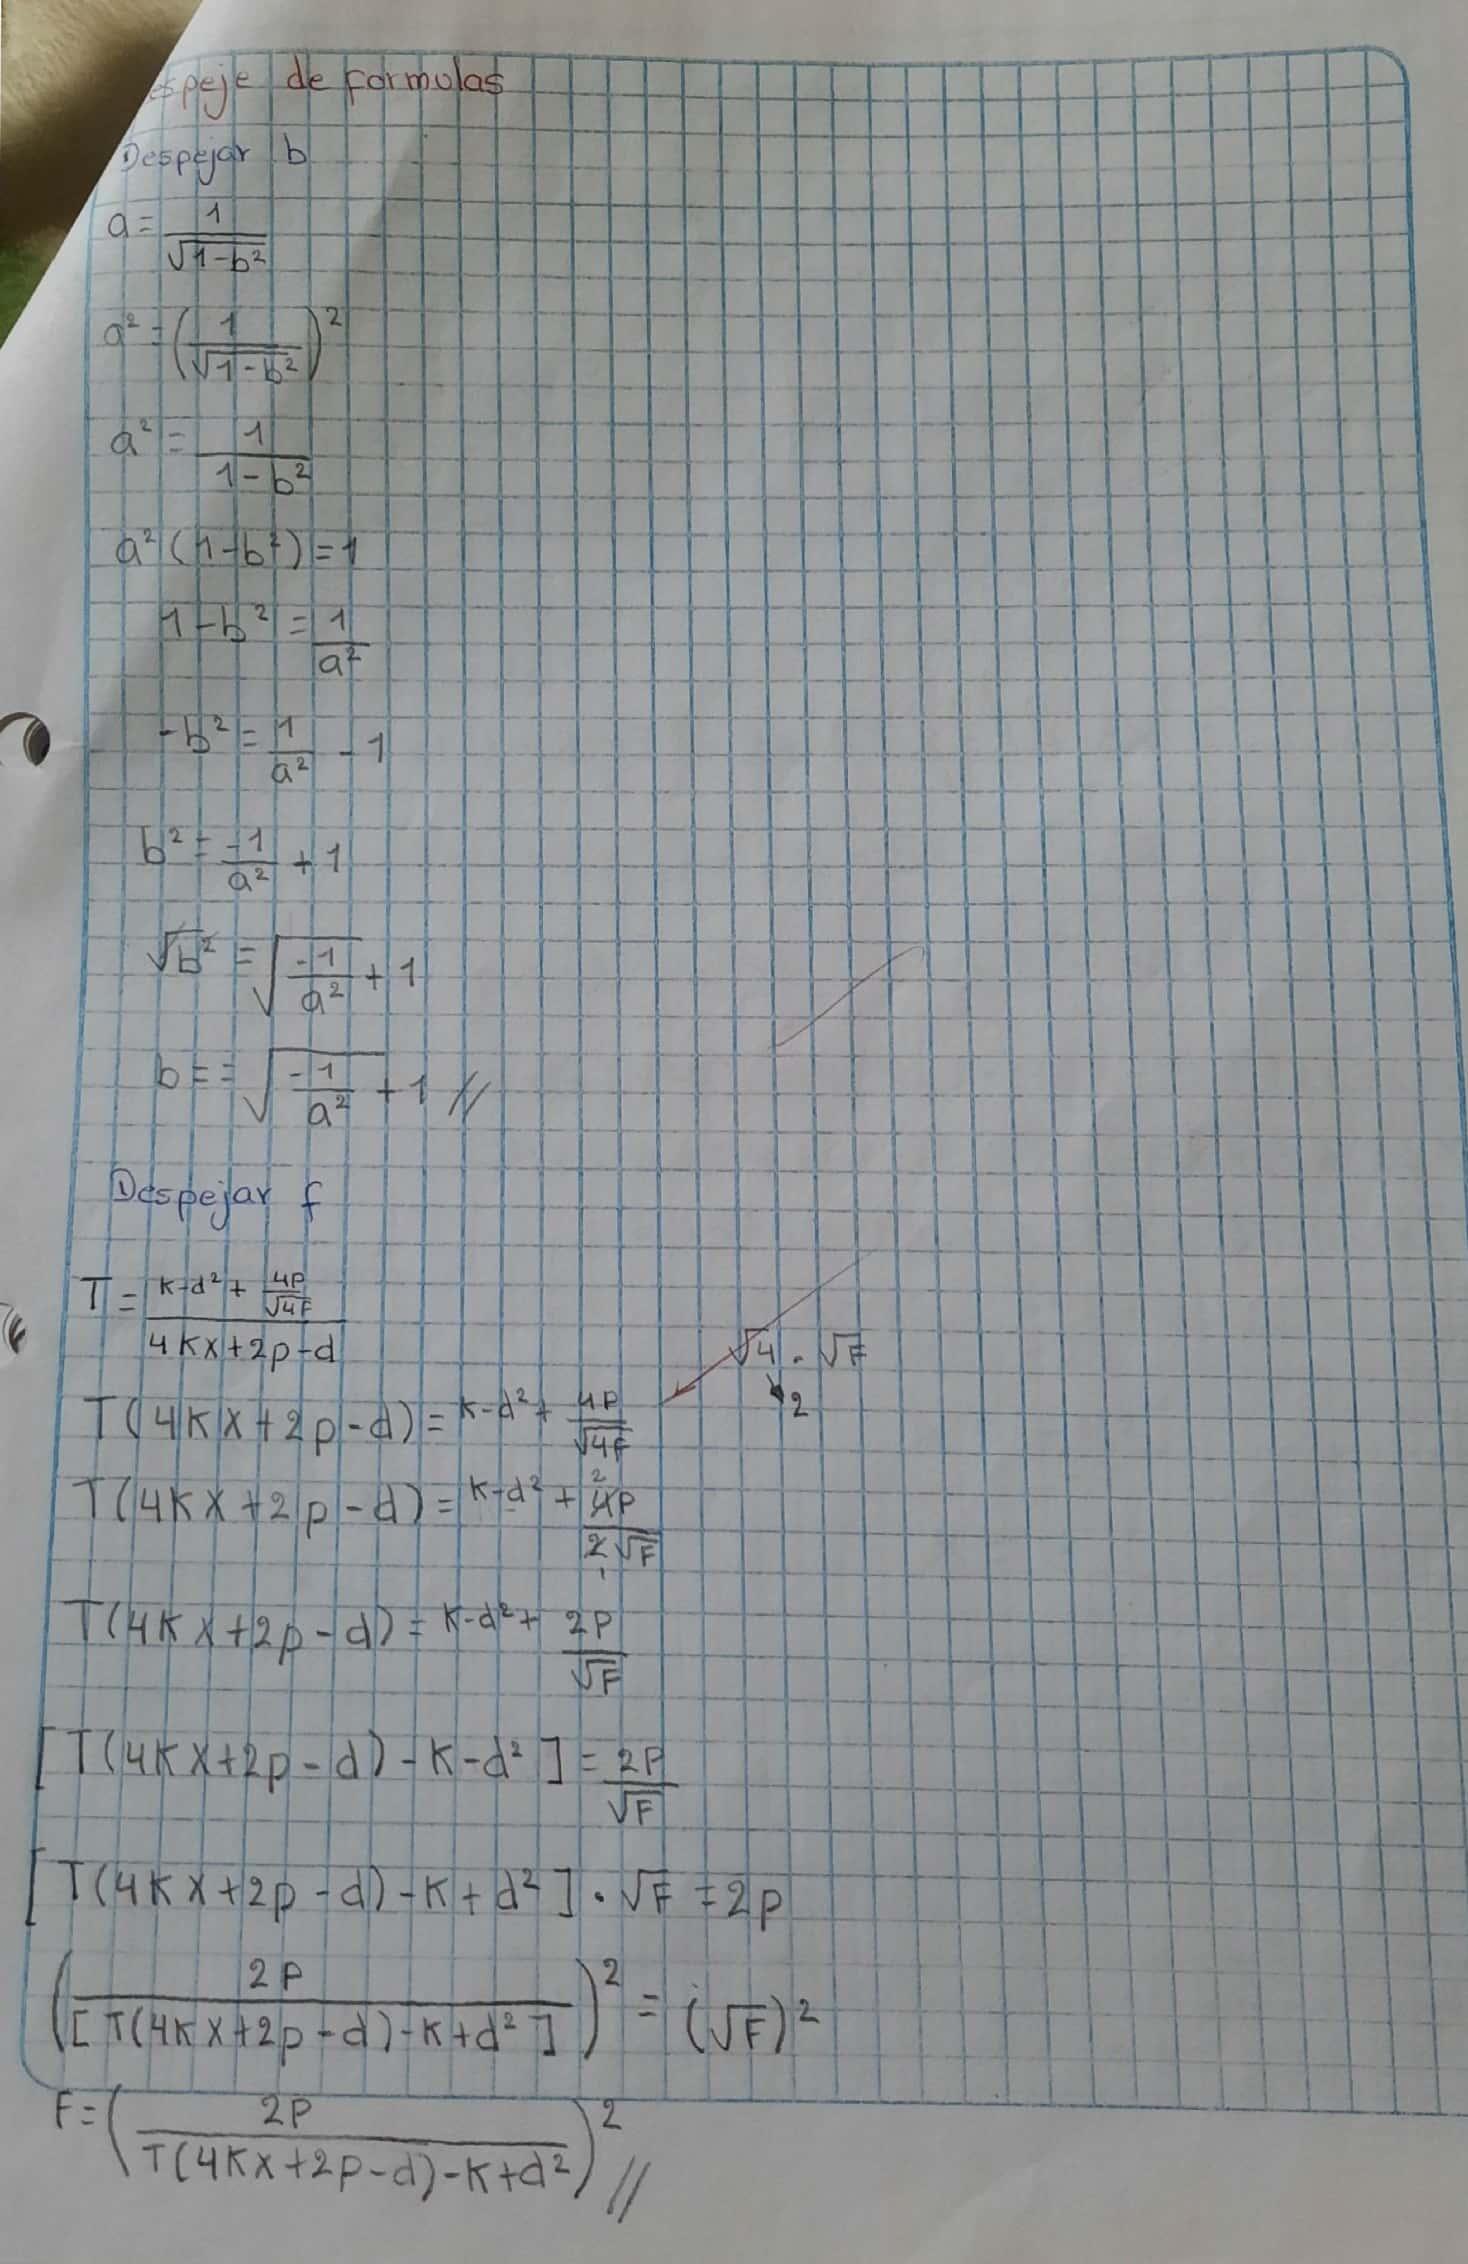 speje de formulas
Despejar b
a = 1/√(1-b²)
a² = (1/√(1-b²))²
a² = 1/(1-b²)
a²(1-b²) = 1
1-b² = 1/a²
-b² = 1/a² - 1
b² = -1/a² + 1
√b² = √(-1/a² + 1)
b = = √(-1/a² + 1) //
Despejar f
T = (k-d² + 4P/√4F)/(4kx+2p-d)
√4 . √F
2
T(4kx+2p-d) = k-d² + 4P/√4F
T(4kx+2p-d) = k-d² + 4P/2√F
2
1
T(4kx+2p-d) = k-d² + 2P/√F
[T(4kx+2p-d)-k-d²] = 2P/√F
[T(4kx+2p-d)-k+d²] · √F = 2p
(2P/[T(4kx+2p-d)-k+d²])² = (√F)²
F = (2P/(T(4kx+2p-d)-k+d²))² //